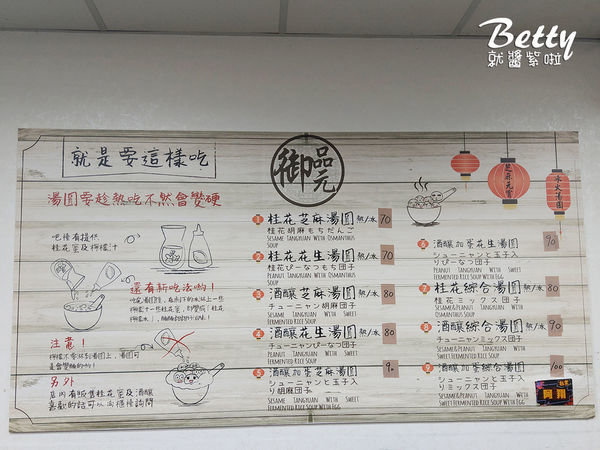 Betty
就醬紫啦
就是要這樣吃
湯圓要趁熱吃不然會變硬
吧檯有提供
桂花蜜及檸檬汁
還有新吃法喲!
注意!
檸檬不等於加湯圓上,湯圓可
另外
店內有販售桂花蜜及酒釀
喜歡的話可以向櫃檯詢問
御品元
芝麻元宵
冰火湯圓
1 桂花芝麻湯圓 熱/冰 70
桂花胡麻もちだんご
Sesame Tangyuan With Osmanthus Soup
2 桂花花生湯圓 熱/冰 70
桂花ぴーなつもち団子
Peanut Tangyuan With Osmanthus Soup
3 酒釀芝麻湯圓 熱/冰 80
チューニャン胡麻団子
Sesame Tangyuan With Sweet
Fermented Rice Soup
4 酒釀花生湯圓 熱/冰 80
チューニャンぴーなつ団子
Peanut Tangyuan With Sweet
Fermented Rice Soup
5 酒釀加蛋芝麻湯圓 90
シューニャンと玉子入
り胡麻団子
Sesame Tangyuan With Sweet
Fermented Rice Soup With Egg
6 酒釀加蛋花生湯圓 90
シューニャンと玉子入
りぴーなつ団子
Peanut Tangyuan With Sweet
Fermented Rice Soup With Egg
7 桂花綜合湯圓 熱/冰 80
桂花ミックス団子
Sesame&Peanut Tangyuan With
Osmanthus Soup
8 酒釀綜合湯圓 熱/冰 90
チューニャンミックス団子
Sesame&Peanut Tangyuan With
Sweet Fermented Rice Soup
9 酒釀加蛋綜合湯圓 100
シューニャンと玉子入
りミックス団子
Sesame&Peanut Tangyuan With
Sweet Fermented Rice Soup With Egg
阿翔